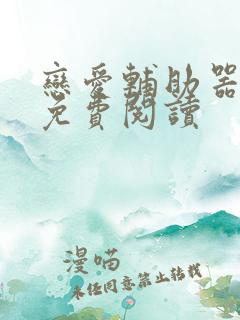 戀愛輔助器
免費閱讀
漫喵
未經同意禁止轉載